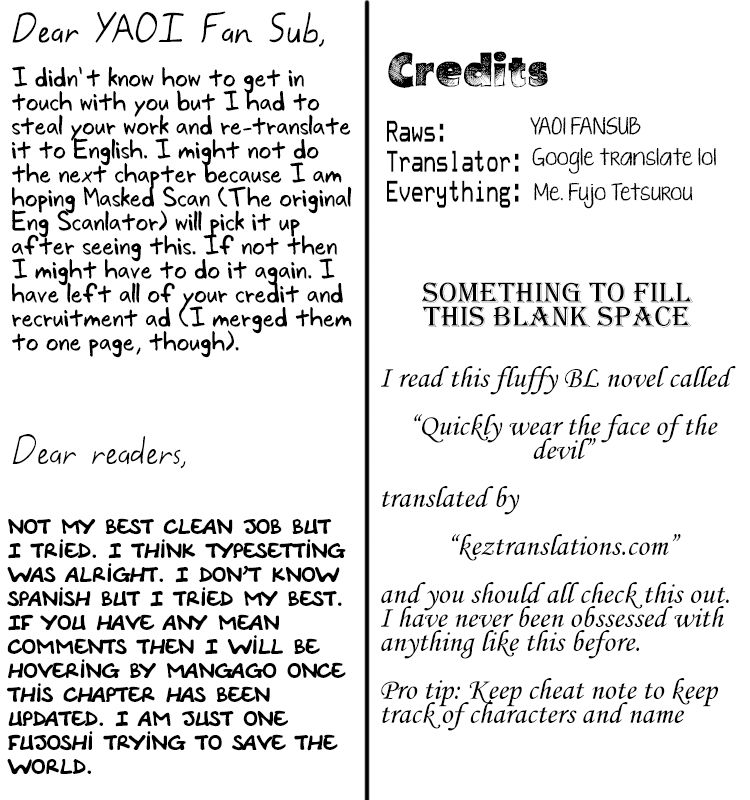 Dear YAOI Fan Sub,
I didn't know how to get in
touch with you but I had to
steal your work and re-translate
it to English. I might not do
the next chapter because I am
hoping Masked Scan (The original
Eng Scanlator) will pick it up
after seeing this. If not then
I might have to do it again. I
have left all of your credit and
recruitment ad (I merged them
to one page, though).
Dear readers,
NOT MY BEST CLEAN JOB BUT
I TRIED. I THINK TYPESETTING
WAS ALRIGHT. I DON'T KNOW
SPANISH BUT I TRIED MY BEST.
IF YOU HAVE ANY MEAN
COMMENTS THEN I WILL BE
HOVERING BY MANGAGO ONCE
THIS CHAPTER HAS BEEN
UPDATED. I AM JUST ONE
FUJOSHI TRYING TO SAVE THE
WORLD.
Credits
Raws: YAOI FANSUB
Translator: Google translate lol
Everything: Me. Fujo Tetsurou
SOMETHING TO FILL
THIS BLANK SPACE
I read this fluffy BL novel called
"Quickly wear the face of the
devil"
translated by
"keztranslations.com"
and you should all check this out.
I have never been obssessed with
anything like this before.
Pro tip: Keep cheat note to keep
track of characters and name